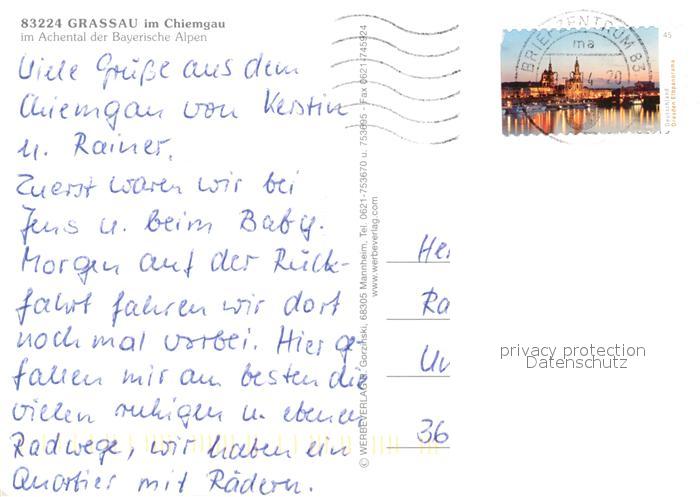 83224 GRASSAU im Chiemgau
im Achental der Bayerische Alpen
Viele Grüße aus dem
Chiemgau von Kerstin
u. Rainer.
Zuerst waren wir bei
Jens u. beim Baby.
Morgen auf der Rück-
fahrt fahren wir dort
noch mal vorbei. Hier ge-
fallen mir am besten die
vielen ruhigen u. ebenen
Radwege, wir haben ein
Quartier mit Rädern.
© WERBEVERLAG Gorzinski, 68305 Mannheim, Tel. 0621-753670 u. 753695 Fax 0621-745924
www.werbeverlag.com
BRIEFZENTRUM 83
ma
45
Deutschland
Dresden Elbpanorama
He
Ra
36
privacy protection
Datenschutz